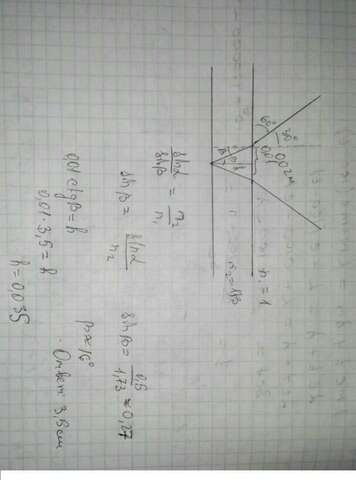 60°
30°
0,01
0,02 м
β
h
n₁ = 1
n₂ = 1,73
sinα/sinβ = n₂/n₁
sinβ = sinα/n₂
sinβ = 0,5/1,73 ≈ 0,27
β ≈ 16°
0,01 ctgβ = h
0,01 · 3,5 = h
h = 0,035
Ответ: 3,5 см